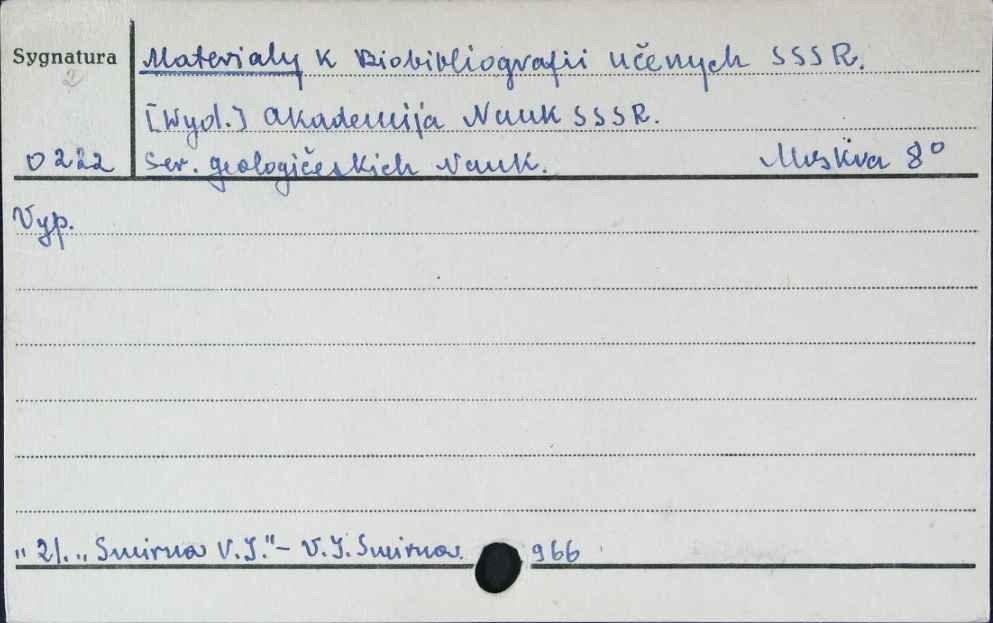 Sygnatura Materialy k Biobibliografii učenych SSSR.
2
[Wyd.] Akademija Nauk SSSR.
0222 Ser. geologičeskich Nauk. Moskva 8°
Vyp.
" 21. „Smirnov V.I." – V.I. Smirnov. 966